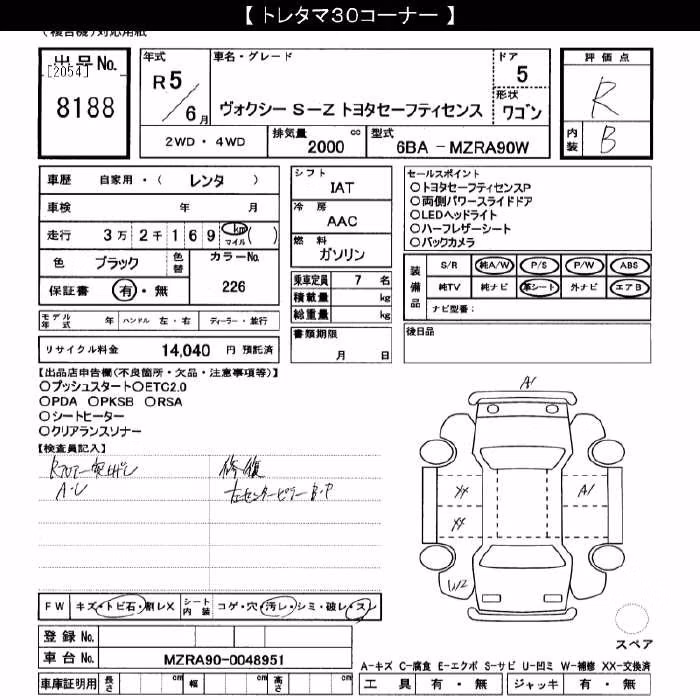 【 トレタマ30コーナー 】
(複合機)対応用紙
出品No.
[2054]
8188
年式
R5/6月
車名・グレード
ヴォクシー S-Z トヨタセーフティセンス
ドア
5
形状
ワゴン
評価点
R
内装
B
2WD・4WD
排気量
2000
cc
型式
6BA - MZRA90W
車歴 自家用・( レンタ )
車検 年 月
走行 3万2千169 km マイル ( )
色 ブラック
色替
カラーNo.
226
保証書 有・無
シフト
IAT
冷房
AAC
燃料
ガソリン
乗車定員 7 名
積載量 kg
総重量 kg
セールスポイント
○トヨタセーフティセンスP
○両側パワースライドドア
○LEDヘッドライト
○ハーフレザーシート
○バックカメラ
装備品
S/R 純A/W P/S P/W ABS
純TV 純ナビ 革シート 外ナビ エアB
ナビ型番:
モデル年式 年 ハンドル 左・右 ディーラー・並行
リサイクル料金 14,040 円 預託済
書類期限
月 日
後日品
【出品店申告欄(不良箇所・欠品・注意事項等)】
○プッシュスタート○ETC2.0
○PDA ○PKSB ○RSA
○シートヒーター
○クリアランスソナー
【検査員記入】
A・U
修復
左センターピラーB・P
A1
XX
A1
XX
W2
FW キズ・トビ石・割レX
シート内装 コゲ・穴・汚レ・シミ・破レ・スレ
登録No.
車台No. MZRA90-0048951
車庫証明用 長さ cm 幅 cm 高さ cm
スペア
A-キズ C-腐食 E-エクボ S-サビ U-凹ミ W-補修 XX-交換済
工具 有・無 ジャッキ 有・無